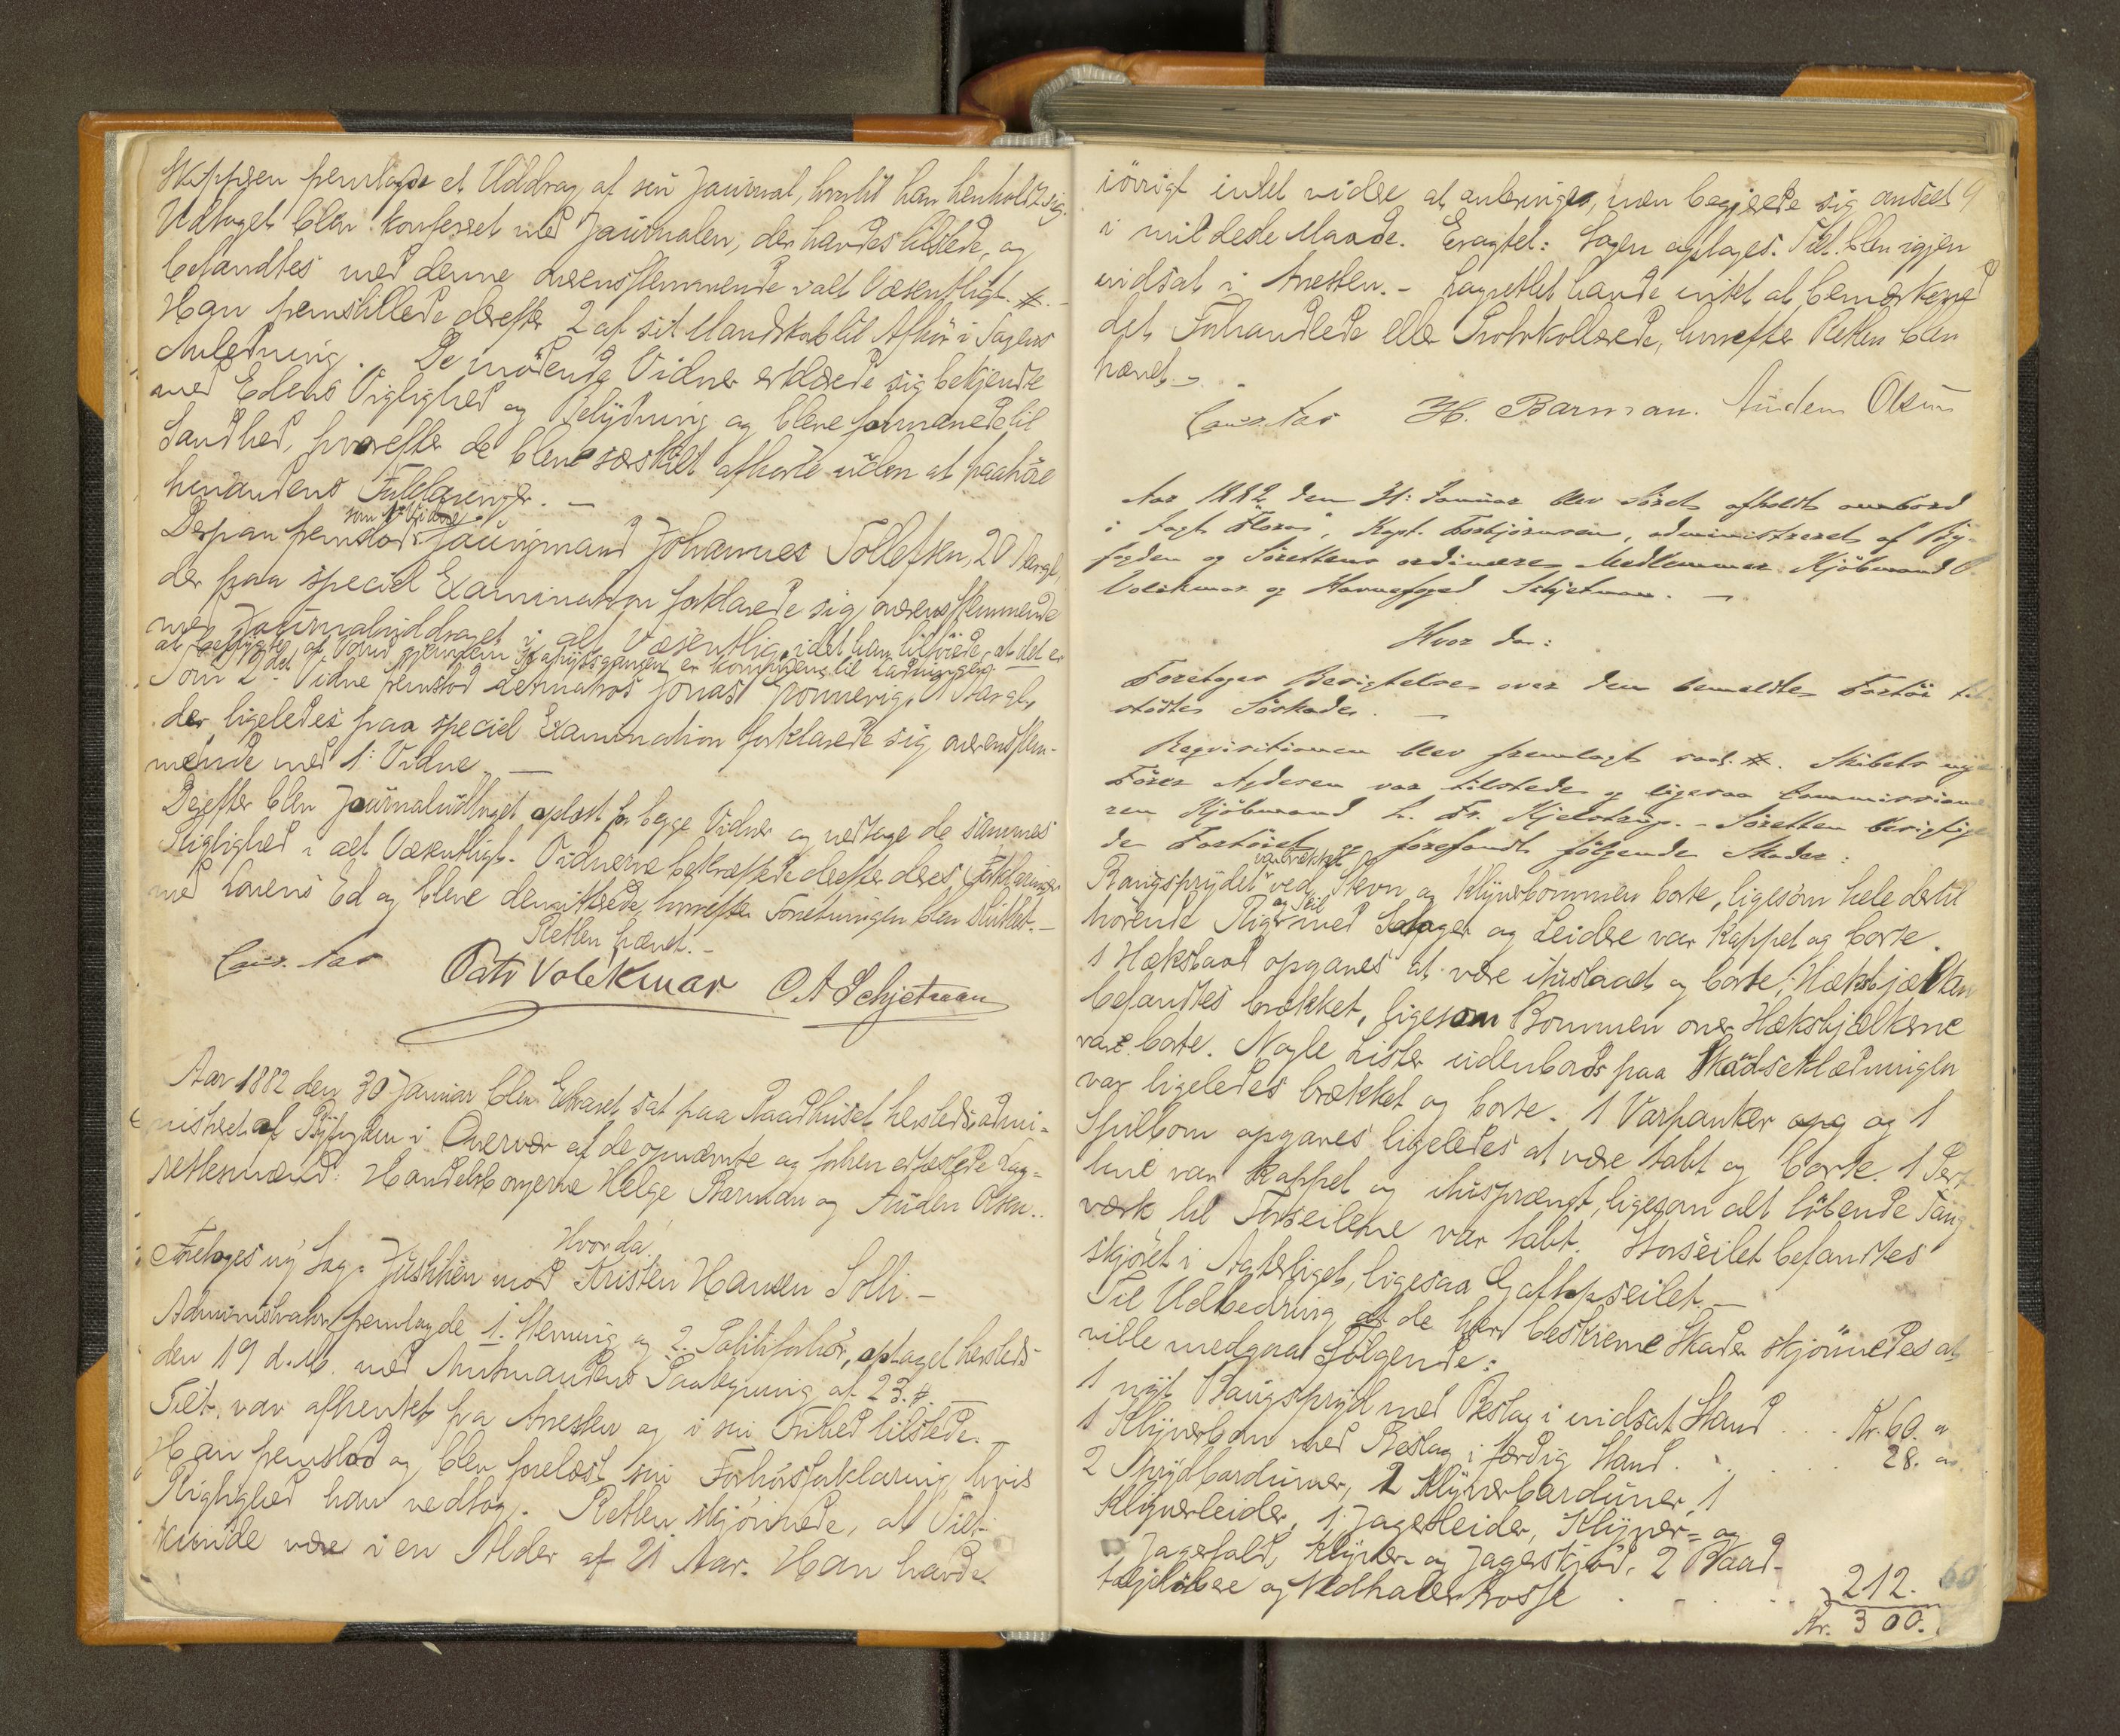 Skipperen fremlagde et Uddrag af sin Journal, hvortil han henholdt sig.
Udtoget blev konfereret med Journalen, der havdes tilstede, og
befandtes med denne overensstemmende i alt Væsentligt. #. -
Han fremstillede derefter 2 af sit Mandskab til Afhör i Sagens
Anledning. De mödende Vidner erklærede sig bekjendte
med Edens Vigtighed og Betydning og bleve formanede til
Sandhed, hvorefter de bleve særskilt afhörte uden at paahöre
hinandens Forklaringer. -
som 1ste Vidne
Derpaa fremstod Jungmand Johannes Tollefsen, 20 Aar gl,
der paa speciel Examination forklarede sig overensstemmende
med Journaluddraget i alt Væsentlig, idet han tilföiede, at det er
at befrygte, at Vand gjennem Spilrygangen er kommen til Ladningen. -
Som 2det Vidne fremstod Letmatros Jonas Grönnevig, Aar gl,
der ligeledes paa speciel Examination forklarede sig overensstem-
mende med 1: Vidne. -
Derefter blev Journaludtoget oplæst for begge Vidner og vedtoge de sammes
Rigtighed i alt Væsentligt. Vidnerne bekræftede derefter deres Forklaringer
med Lovens Ed og bleve demitterede, hvorefter Forretningen blev sluttet. -
Retten hævet. -
Chr. Aas Patr Volckmar O A Schjetnan
Aar 1882 den 30 Januar blev Extraret sat paa Raadhuset hersteds, admi-
nistreret af Byfogden i Overvær af de opnævnte og forhen edfæstede Lag-
rettesmænd: Handelsborgerne Helge Barman og Auden Olsen.
Hvor da:
Foretoges ny Sag: Justitien mod Kristen Hansen Solli. -
Administrator fremlagde 1. Stevning og 2. Politiforhör, optaget hersteds
den 19 d. M. med Amtmandens Paategning af 23. #. -
Tilt. var afhentet fra Arresten og i sin Frihed tilstede. -
Han fremstod og blev forelæst sin Forhörsforklaring, hvis
Rigtighed han vedtog. Retten skjönnede, at Tilt.
kunde være i en Alder af 21 Aar. Han havde
iövrigt intet videre at anbringe, men begjerede sig anseet 9
i mildeste Maade. Eragtet: Sagen optages. Tilt. blev igjen
indsat i Arresten. - Lagrettet havde intet at bemærke ved
det Forhandlede eller Protokollerede, hvorefter Retten blev
hævet. -
Chr. Aas H. Barman. Auden Olsen
Aar 1882 den 31: Januar blev Söret afholdt ombord
i Jagt "Flora", Kapt. Torbjörnsen, administreret af By-
fogden og Sörettens ordinære Medlemmer Kjöbmand P.
Volckmar og Havnefoged Schjetnan. -
Hvor da:
Foretoges Besigtelse over den bemeldte Fartöi til-
stödte Söskade. -
Reqvisitionen blev fremlagt saal. #. Skibets nye
Förer Andersen var tilstede og ligesaa Commissionæ-
ren Kjöbmand L. Fr. Kjelstrup. - Söretten besigtige-
de Fartöiet og forefandt fölgende Skader:
var brækket
Baugsprydet ved Stevn og Klyverbommen borte, ligesom hele dertil
og Seil
hörende Rig med Jager og Leidere var kappet og borte.
1 Hækbaad opgaves at være ituslaaet og borte; Hækbjælken
befandtes brækket, ligesom Bommen over Hækbjælkerne
var borte. Nogle Lister udenbords paa Skandseklædningen
var ligeledes brækket og borte. 1 Varpanker og 1
Spilbom opgaves ligeledes at være tabt og borte. 1 Pert-
line var kappet og itusprængt, ligesom alt löbende Taug-
værk til Forseilene var tabt. Storseilet befandtes
skjöret i Agterliget, ligesaa Gaftopseilet. -
Til Udbedring af de her beskrevne Skader skjönnedes at
ville medgaa Fölgende:
1 nyt Baugspryd med Beslag i indsat Stand . . . Kr. 60. "
1 Klyverbom med Beslag i færdig Stand . . . 28. "
2 Sprydbarduner, 2 Klyverbarduner, 1
Klyverleider, 1 Jagerleider, Klyver- og
Jagerfald, Klyver- og Jagerskjöd, 2 Baad-
taljelöbere og Nedhalertrosse . . . 212.
Kr. 300.